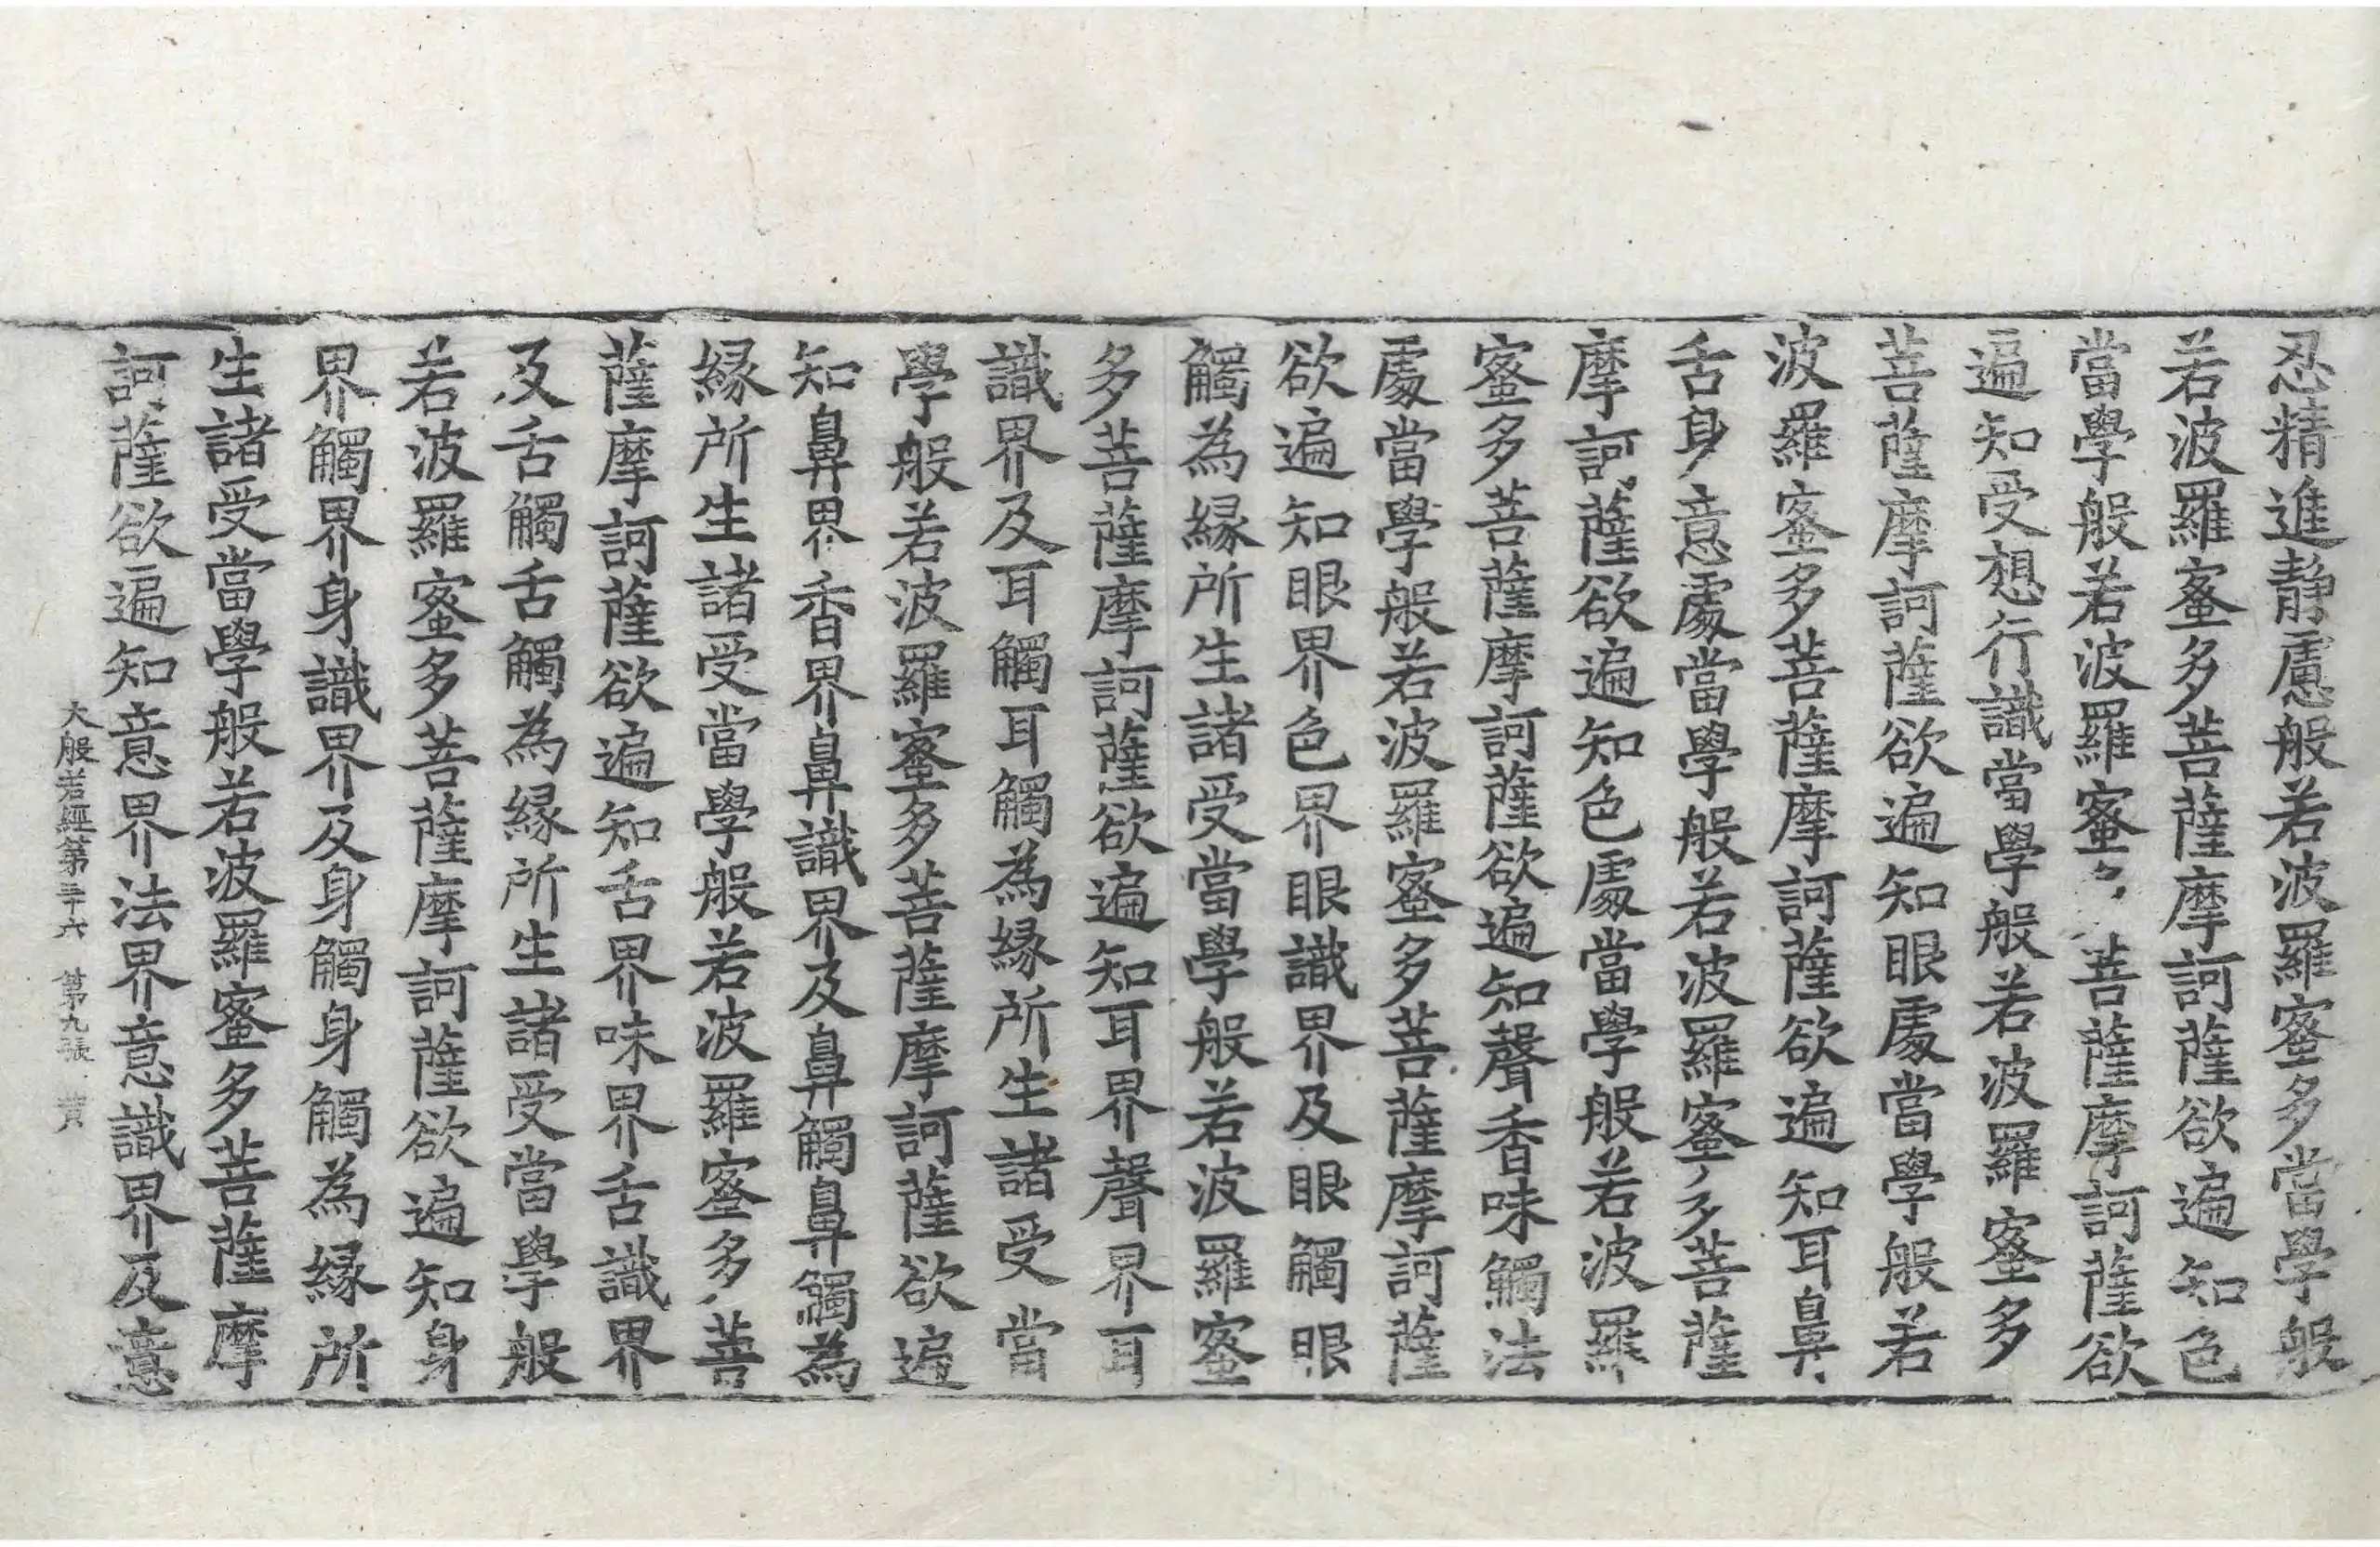 忍精進靜慮般若波羅蜜多當學般
若波羅蜜多菩薩摩訶薩欲遍知色
當學般若波羅蜜々菩薩摩訶薩欲
遍知受想行識當學般若波羅蜜多
菩薩摩訶薩欲遍知眼處當學般若
波羅蜜多菩薩摩訶薩欲遍知耳鼻
舌身意處當學般若波羅蜜多菩薩
摩訶薩欲遍知色處當學般若波羅
蜜多菩薩摩訶薩欲遍知聲香味觸法
處當學般若波羅蜜多菩薩摩訶薩
欲遍知眼界色界眼識界及眼觸眼
觸為緣所生諸受當學般若波羅蜜
多菩薩摩訶薩欲遍知耳界聲界耳
識界及耳觸耳觸為緣所生諸受當
學般若波羅蜜多菩薩摩訶薩欲遍
知鼻界香界鼻識界及鼻觸鼻觸為
緣所生諸受當學般若波羅蜜多菩
薩摩訶薩欲遍知舌界味界舌識界
及舌觸舌觸為緣所生諸受當學般
若波羅蜜多菩薩摩訶薩欲遍知身
界觸界身識界及身觸身觸為緣所
生諸受當學般若波羅蜜多菩薩摩
訶薩欲遍知意界法界意識界及意
大般若經第三十六 第九張 黃